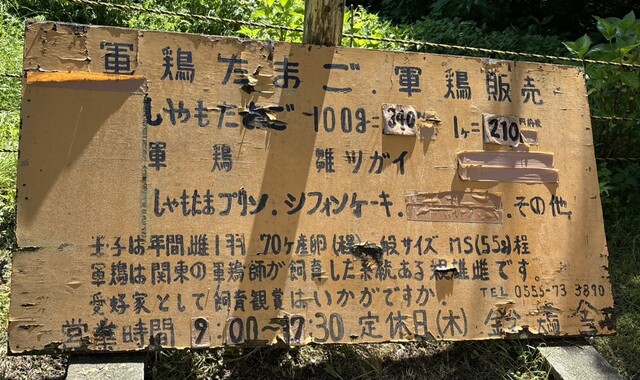 軍鶏たまご.軍鶏販売
しゃもたまご 100g=340 1ヶ=210円
軍鶏 雛ツガイ
しゃもたまプリン.シフォンケーキ. .その他
玉子は年間雌1羽.70ヶ産卵(程) 一般サイズ MS(55g)程
軍鶏は関東の軍鶏師が飼育した系統ある 雄雌です。
愛好家として飼育観賞はいかがですか TEL 0555-73 3890
営業時間 9:00〜17:30 定休日(木)